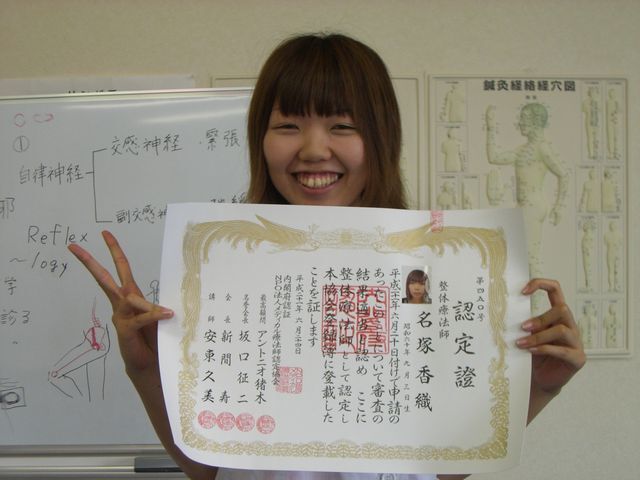 ①
自律神経
交感神経・緊張
副交感神経
邪
Reflex
~logy
学
診?
鍼灸経絡経穴図
認定證
第四五〇号
整体療法師
名塚香織
昭和六十年九月三日生
平成二十一年六月二十日付で申請の
あった
について審査の
結果
認め ここに
整体療法師として認定し
本協会
簿に登載した
ことを証します
平成二十一年六月二十四日
内閣府認証
NPO法人メディカル療法師認定協会
最高顧問 アントニオ猪木
名誉会長 坂口征二
会長 新間寿
講師 安東久美